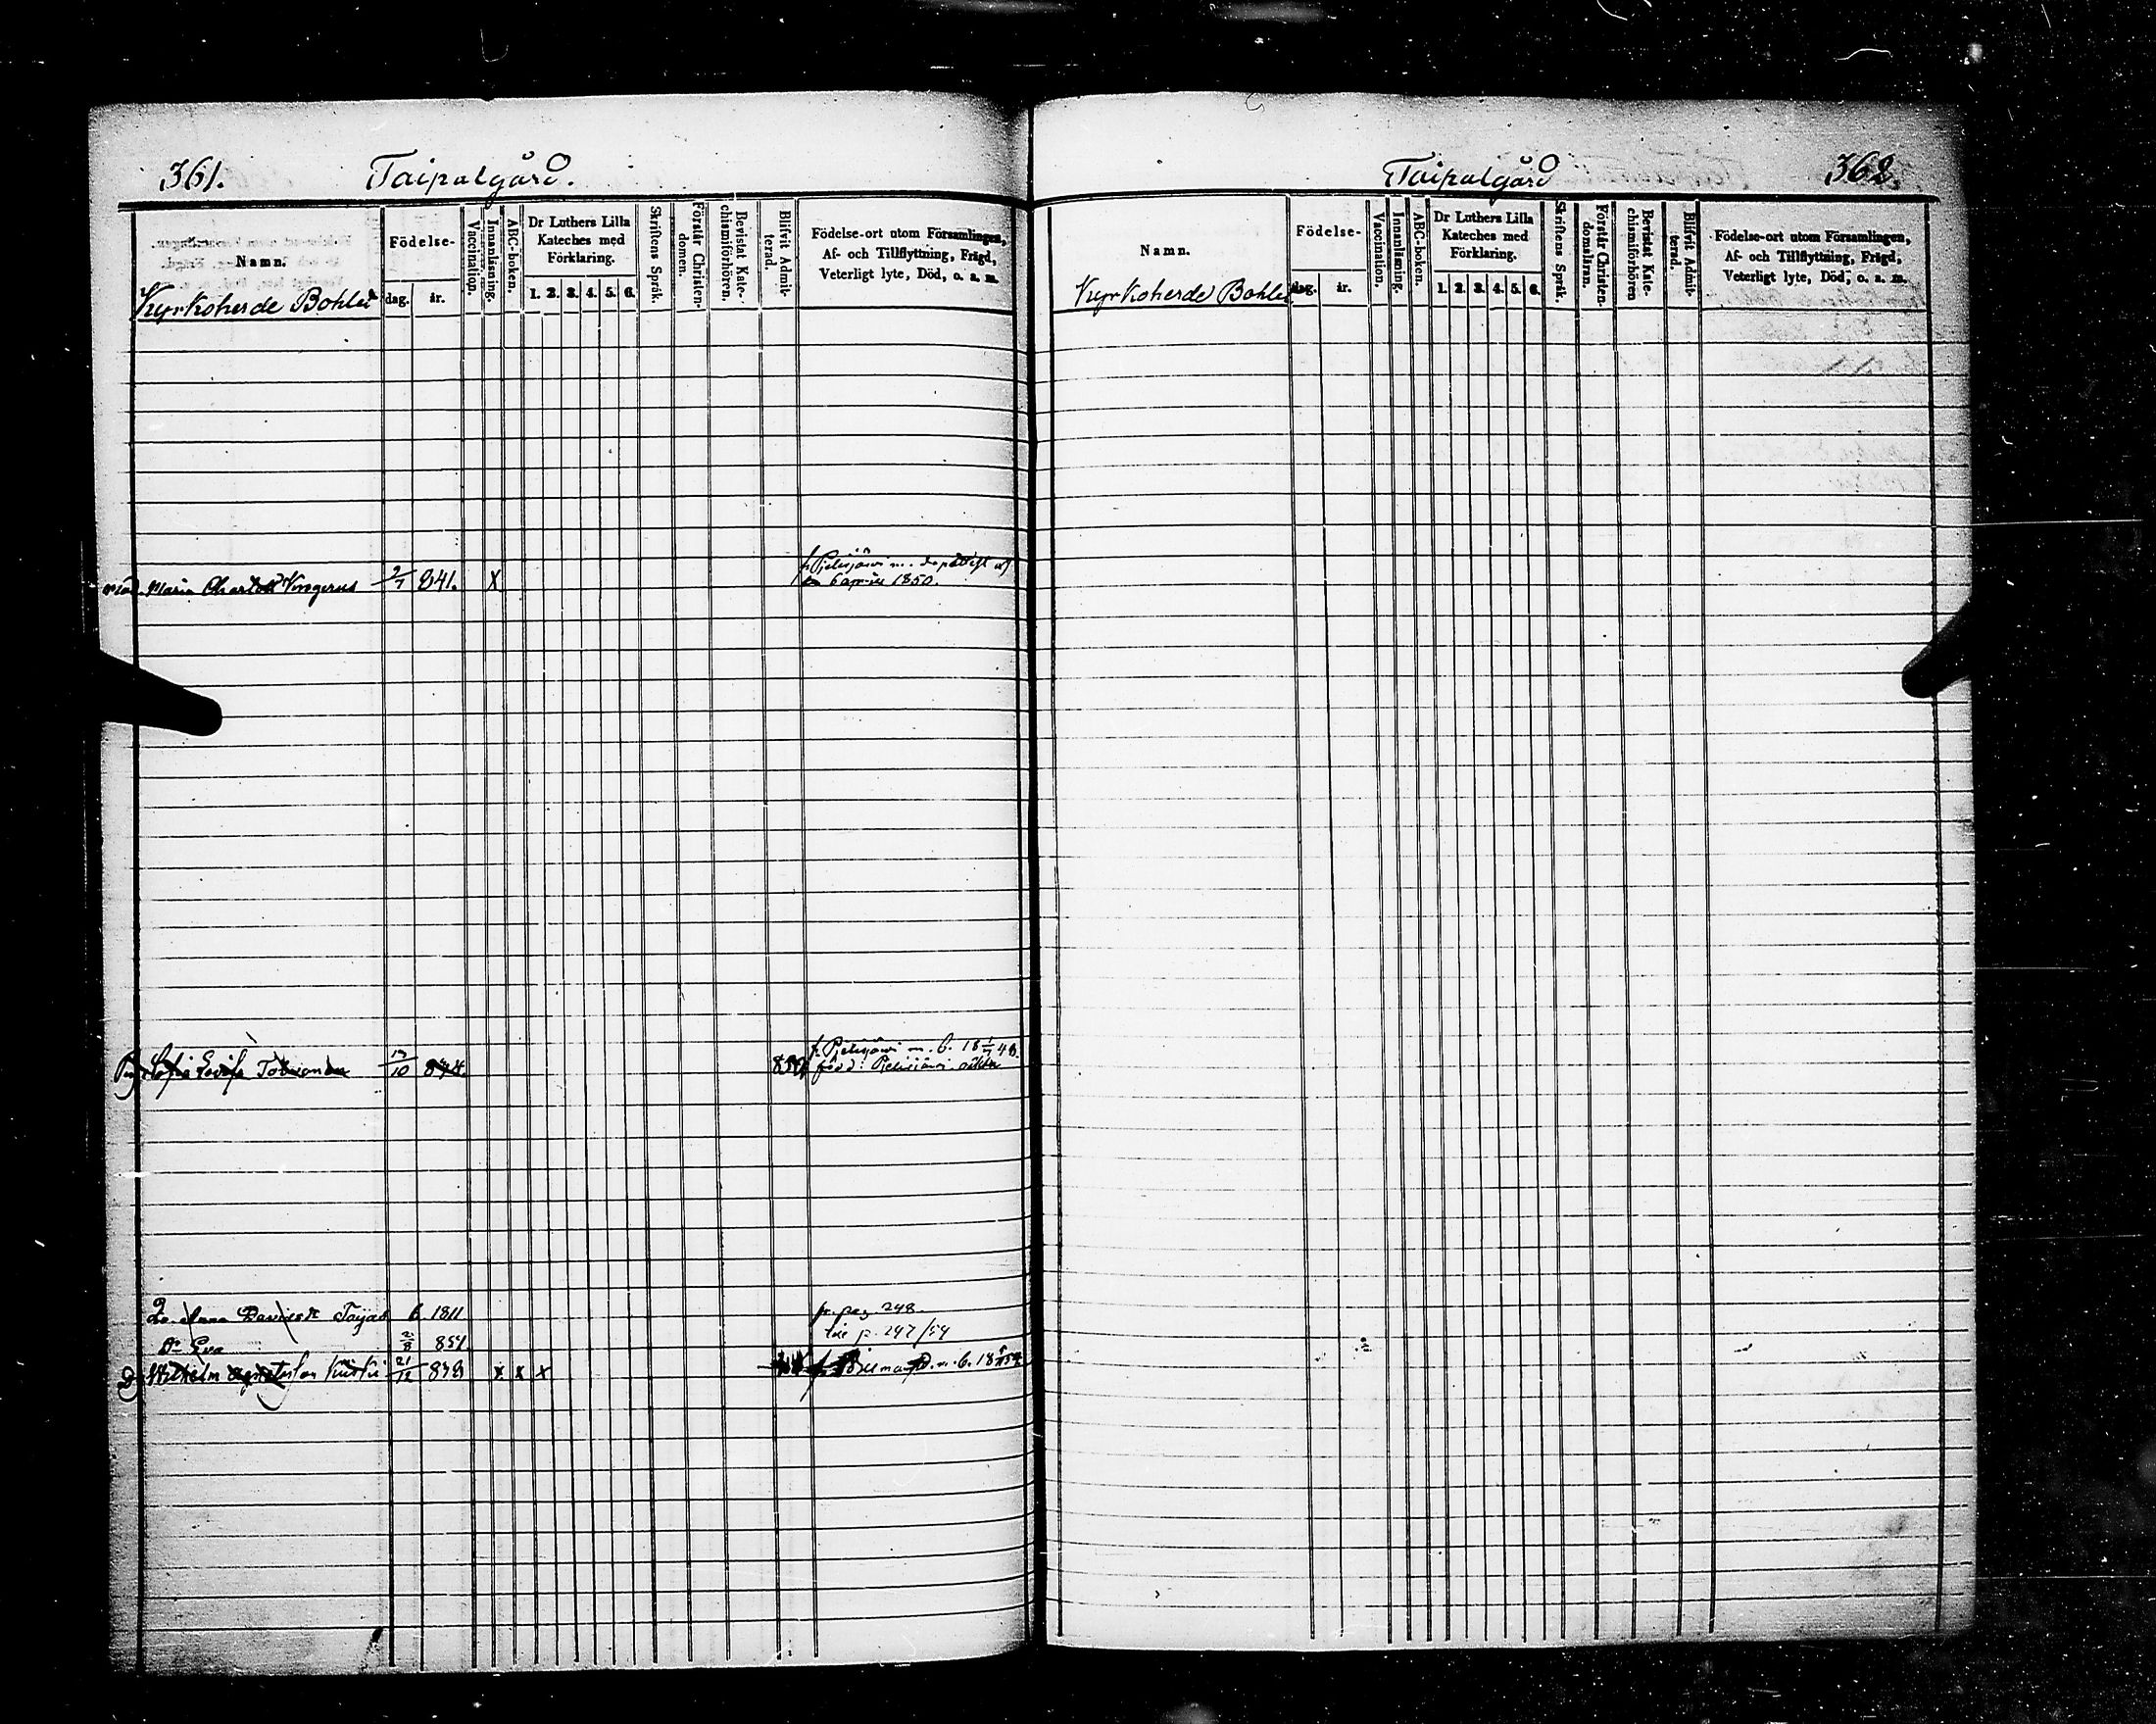 361. Taipalgård.
Namn.
Födelse-
dag. år.
Vaccination.
Innanläsning.
ABC-boken.
Dr Luthers Lilla
Kateches med
Förklaring.
1. 2. 3. 4. 5. 6.
Skriftens Språk.
Förstår Christen-
domen.
Bevistat Kate-
chismiförhören.
Blifvit Admit-
terad.
Födelse-ort utom Församlingen,
Af- och Tillflyttning, Frägd,
Veterligt lyte, Död, o. s. m.
Kyrkoherde Bohle
Maria Charlott 2/7 841. X
6 april 1850.
Sofia Lovisa 10 844. 850 f. Pielisjärvi m. b. 18 48.
född i Pielisjärvi
Anna 6 1811 fr. pag. 248.
Dr Eva 2/8 851 p. 247/54
Wilhelm 21/12 839 x x x m. b. 18
Taipalgård 362.
Namn.
Födelse-
dag. år.
Vaccination.
Innanläsning.
ABC-boken.
Dr Luthers Lilla
Kateches med
Förklaring.
1. 2. 3. 4. 5. 6.
Skriftens Språk.
Förstår Christen-
domsläran.
Bevistat Kate-
chismiförhören
Blifvit Admit-
terad.
Födelse-ort utom Församlingen,
Af- och Tillflyttning, Frägd,
Veterligt lyte, Död, o. s. m.
Kyrkoherde Bohle